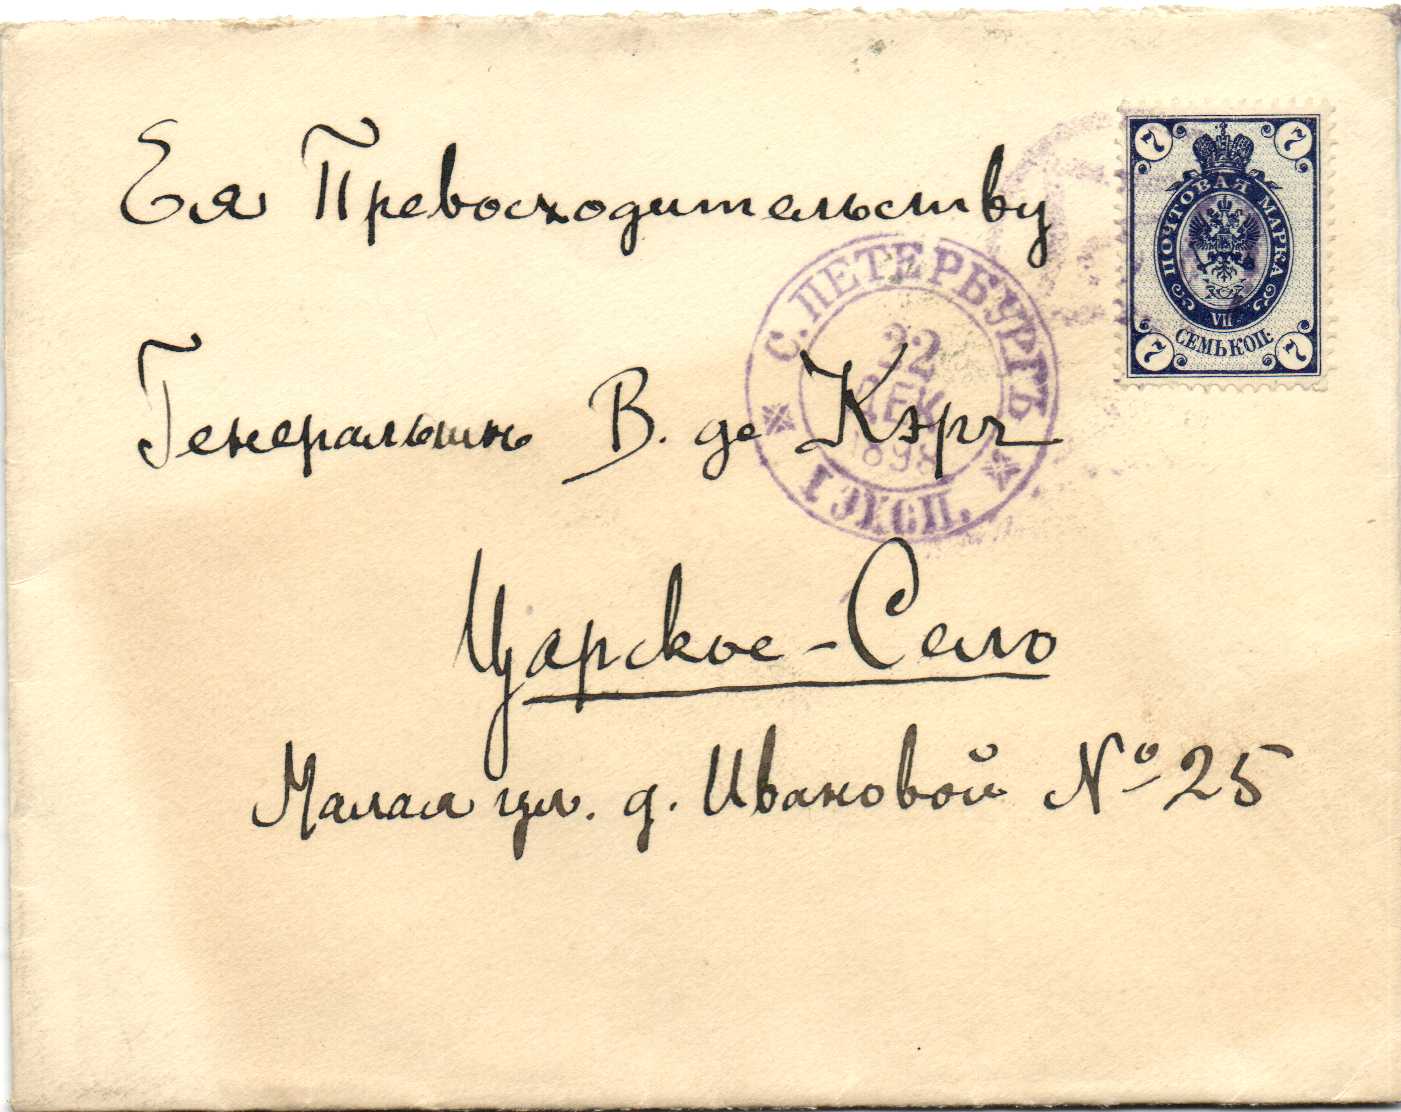 7 7
ПОЧТОВАЯ МАРКА
VII
СЕМЬ КОП.
7 7
Ея Превосходительству
С. ПЕТЕРБУРГЪ
22
ДЕК
1898
I ЭКСП.
Генеральшѣ В. де Кэрч
Царское-Село
Малая ул. д. Ивановой № 25